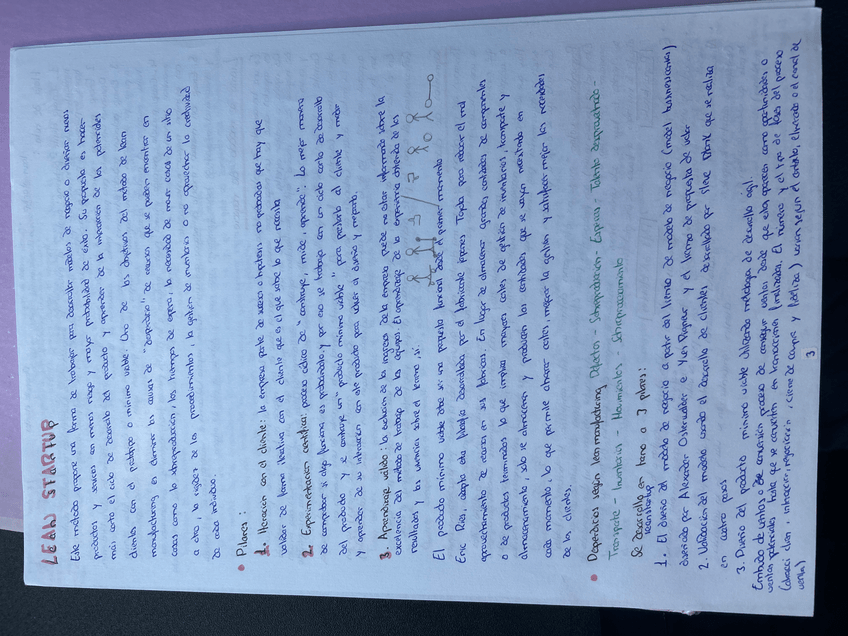 LEAN STARTUP
Este método propone una forma de trabajar para desarrollar modelos de negocio o diseñar nuevos
productos y servicios con menos riesgo y mayor probabilidad de éxito. Su propuesta es hacer
más corto el ciclo de desarrollo del producto y aprender de la interacción de los potenciales
clientes con el prototipo o mínimo viable. Uno de los objetivos del método de lean
manufacturing es eliminar las causas de "desperdicio" de recursos que se podían encontrar en
cosas como la sobreproducción, los tiempos de espera, la necesidad de mover cosas de un sitio
a otro, la rigidez de los procedimientos, la gestión de inventarios o no aprovechar la creatividad
de cada individuo.
• Pilares:
1. Iteración con el cliente: la empresa parte de ideas o hipótesis no probadas que hay que
validar de forma iterativa con el cliente que es el que sabe lo que necesita
2. Experimentación científica: proceso cíclico de "construye, mide, aprende". La mejor manera
de comprobar si algo funciona es probándolo, y por eso se trabaja en un ciclo corto de desarrollo
del producto y se construye un "producto mínimo viable" para mostrarlo al cliente y medir
y aprender de su interacción con este producto para volver al diseño y mejorarlo.
3. Aprendizaje válido: la evolución de los ingresos de la empresa puede no estar informando sobre la
excelencia del método de trabajo de los equipos. El aprendizaje de la experiencia obtenida de los
resultados y las vivencias sobre el terreno, sí.
El producto mínimo viable debe ser un pequeño funcional desde el primer momento
Eric Ries, adopta esta filosofía desarrollada por el fabricante japonés Toyota para reducir el mal
aprovechamiento de recursos en sus fábricas. En lugar de almacenar grandes cantidades de componentes
o de productos terminados lo que implica mayores costes de gestión de inventarios, transporte y
almacenamiento, solo se almacenan y producen las cantidades que se vayan necesitando en
cada momento, lo que permite ahorrar costes, mejorar la gestión y satisfacer mejor las necesidades
de los clientes.
• Desperdicios según lean manufacturing Defectos - Sobreproducción - Esperas - Talento desaprovechado -
Transporte - Inventarios - Movimientos - Sobreprocesamiento
Se desarrolla en torno a 3 pilares:
lean startup
1. El diseño del modelo de negocio a partir del lienzo de modelo de negocio (model business canvas)
diseñado por Alexander Osterwalder e Yves Pigneur y el lienzo de propuesta de valor
2. Validación del modelo usando el desarrollo de clientes desarrollado por Steve Blank que se realiza
en cuatro pasos
3. Diseño del producto mínimo viable utilizando metodologías de desarrollo agil.
Embudo de ventas o de conversión proceso de conseguir ventas desde que estas aparecen como oportunidades o
ventas potenciales hasta que se convierten en transacciones realizadas. El número y el tipo de fases del proceso
(atracción, interacción, negociación, cierre de compra y fideliza) varían según el ámbito, el mercado o el canal de
venta)
3